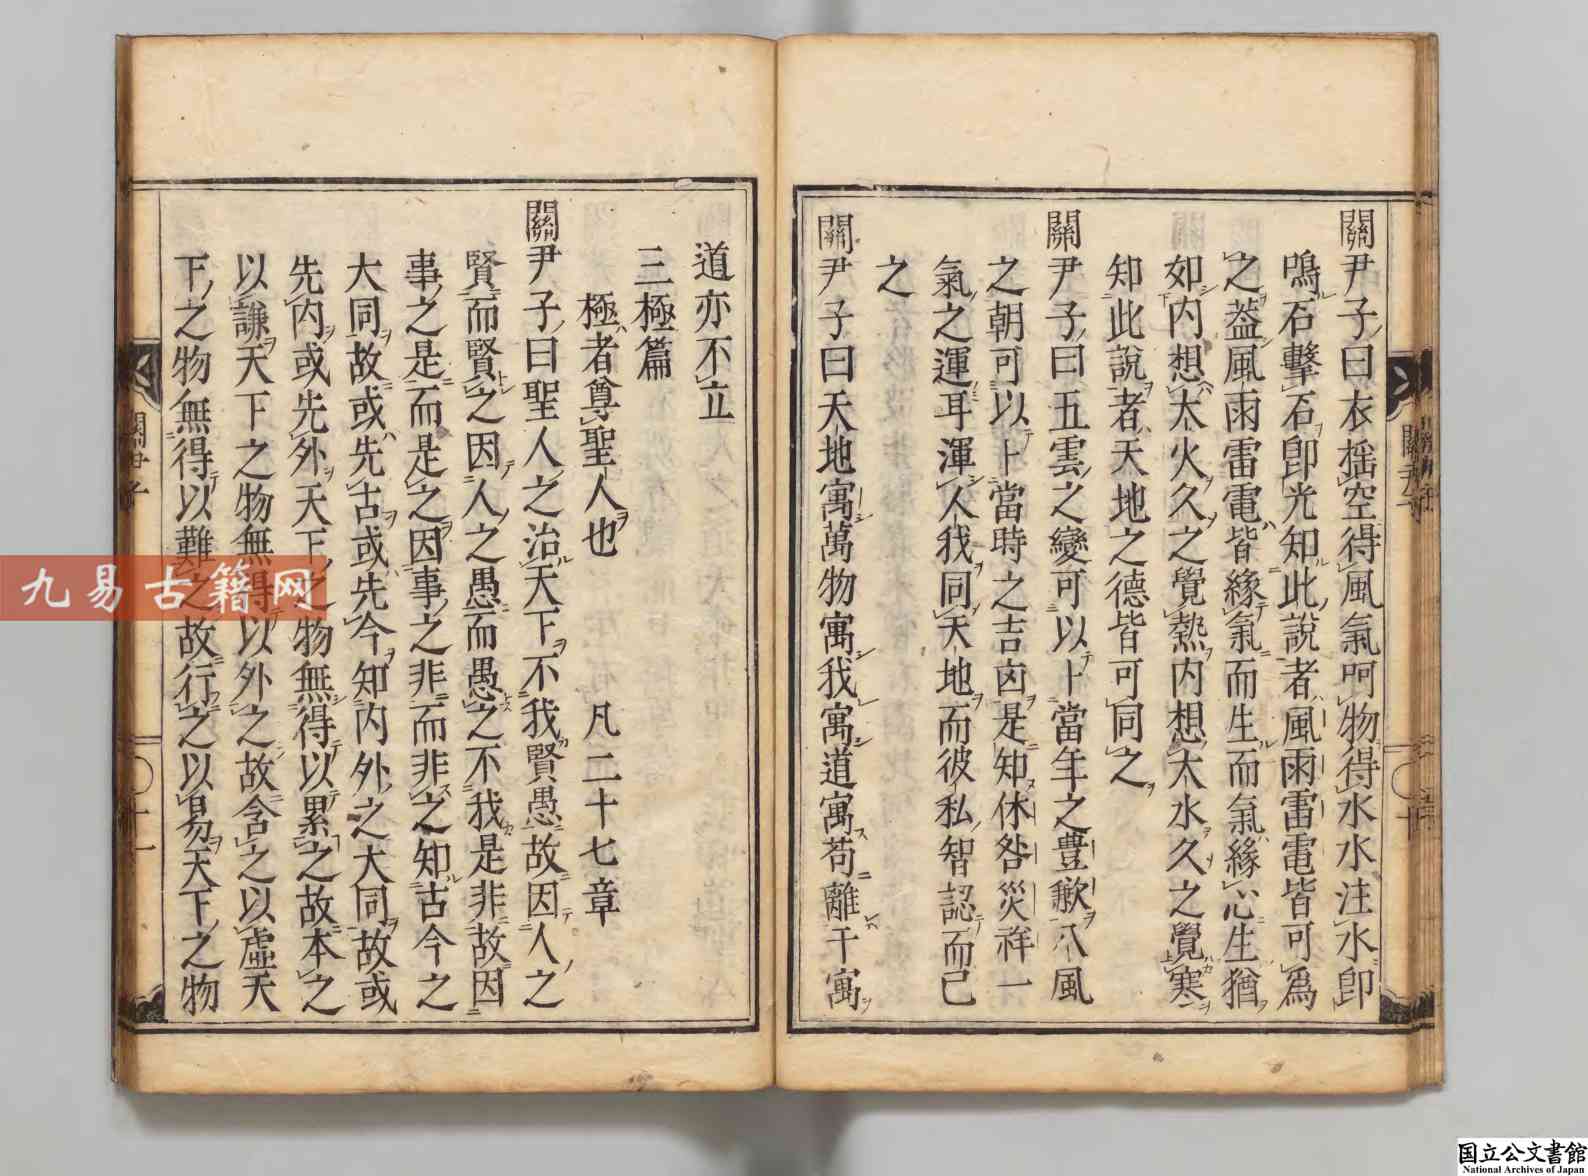 關尹子曰衣揺空得風氣呵物得水水注水卽
鳴石擊石卽光知此說者風雨雷電皆可爲
之葢風雨雷電皆緣氣而生而氣緣心生猶
如內想大火久之覺熱內想大水久之覺寒
知此說者天地之德皆可同之
關尹子曰五雲之變可以卜當年之豊歉八風
之朝可以卜當時之吉凶是知休咎災祥一
氣之運耳渾人我同天地而彼私智認而己
之
關尹子曰天地寓萬物寓我寓道寓苟離于寓
道亦不立
三極篇
極者尊聖人也　凡二十七章
關尹子曰聖人之治天下不我賢愚故因人之
賢而賢之因人之愚而愚之不我是非故因
事之是而是之因事之非而非之知古今之
大同故或先古或先今知內外之大同故或
先內或先外天下之物無得以累之故本之
以謙天下之物無得以外之故含之以虛天
下之物無得以難之故行之以易天下之物
關尹子
十
關尹子
十一
九易古籍网
国立公文書館
National Archives of Japan